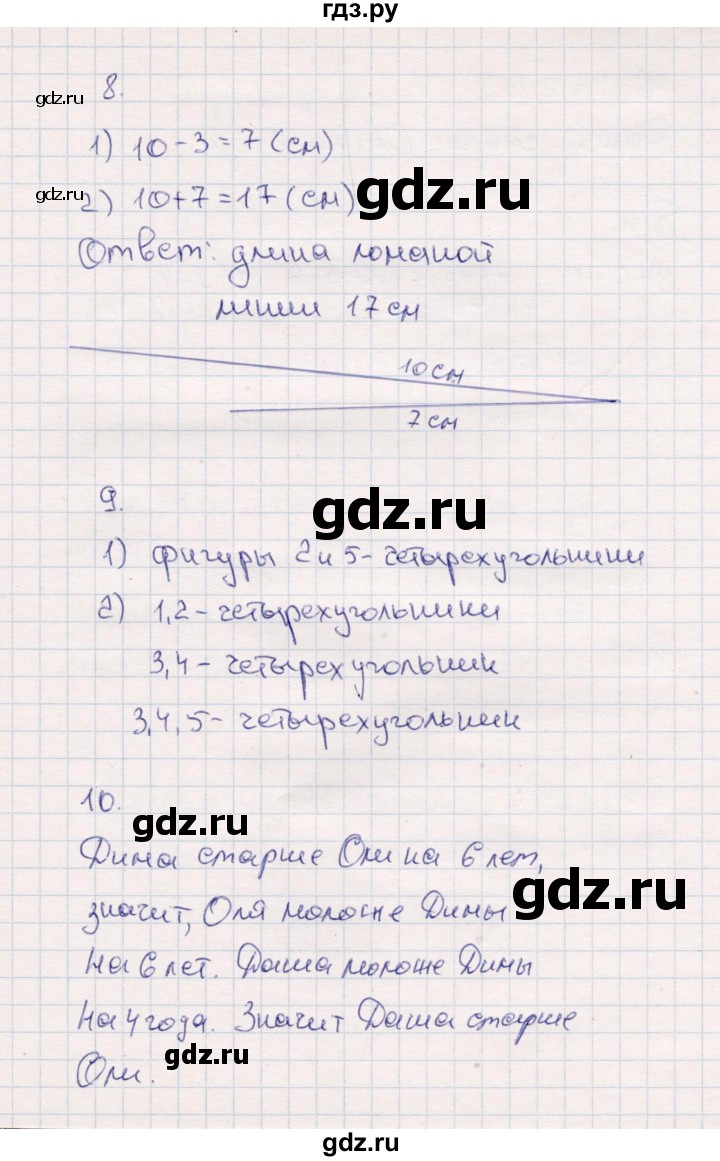 гдз.ру
8.
gdz.ru
1) 10-3=7 (см)
gdz.ru
2) 10+7=17 (см)
gdz.ru
Ответ: длина ломаной
линии 17 см
10 см
7 см
gdz.ru
9.
1) фигуры 2 и 5 - четырехугольники
2) 1,2 - четырехугольники
3,4 - четырехугольник
3,4,5 - четырехугольник
10.
gdz.ru
Дина старше Оли на 6 лет,
gdz.ru
значит, Оля моложе Дины
на 6 лет. Даша моложе Дины
на 4 года. Значит Даша старше
gdz.ru
Оли.
gdz.ru